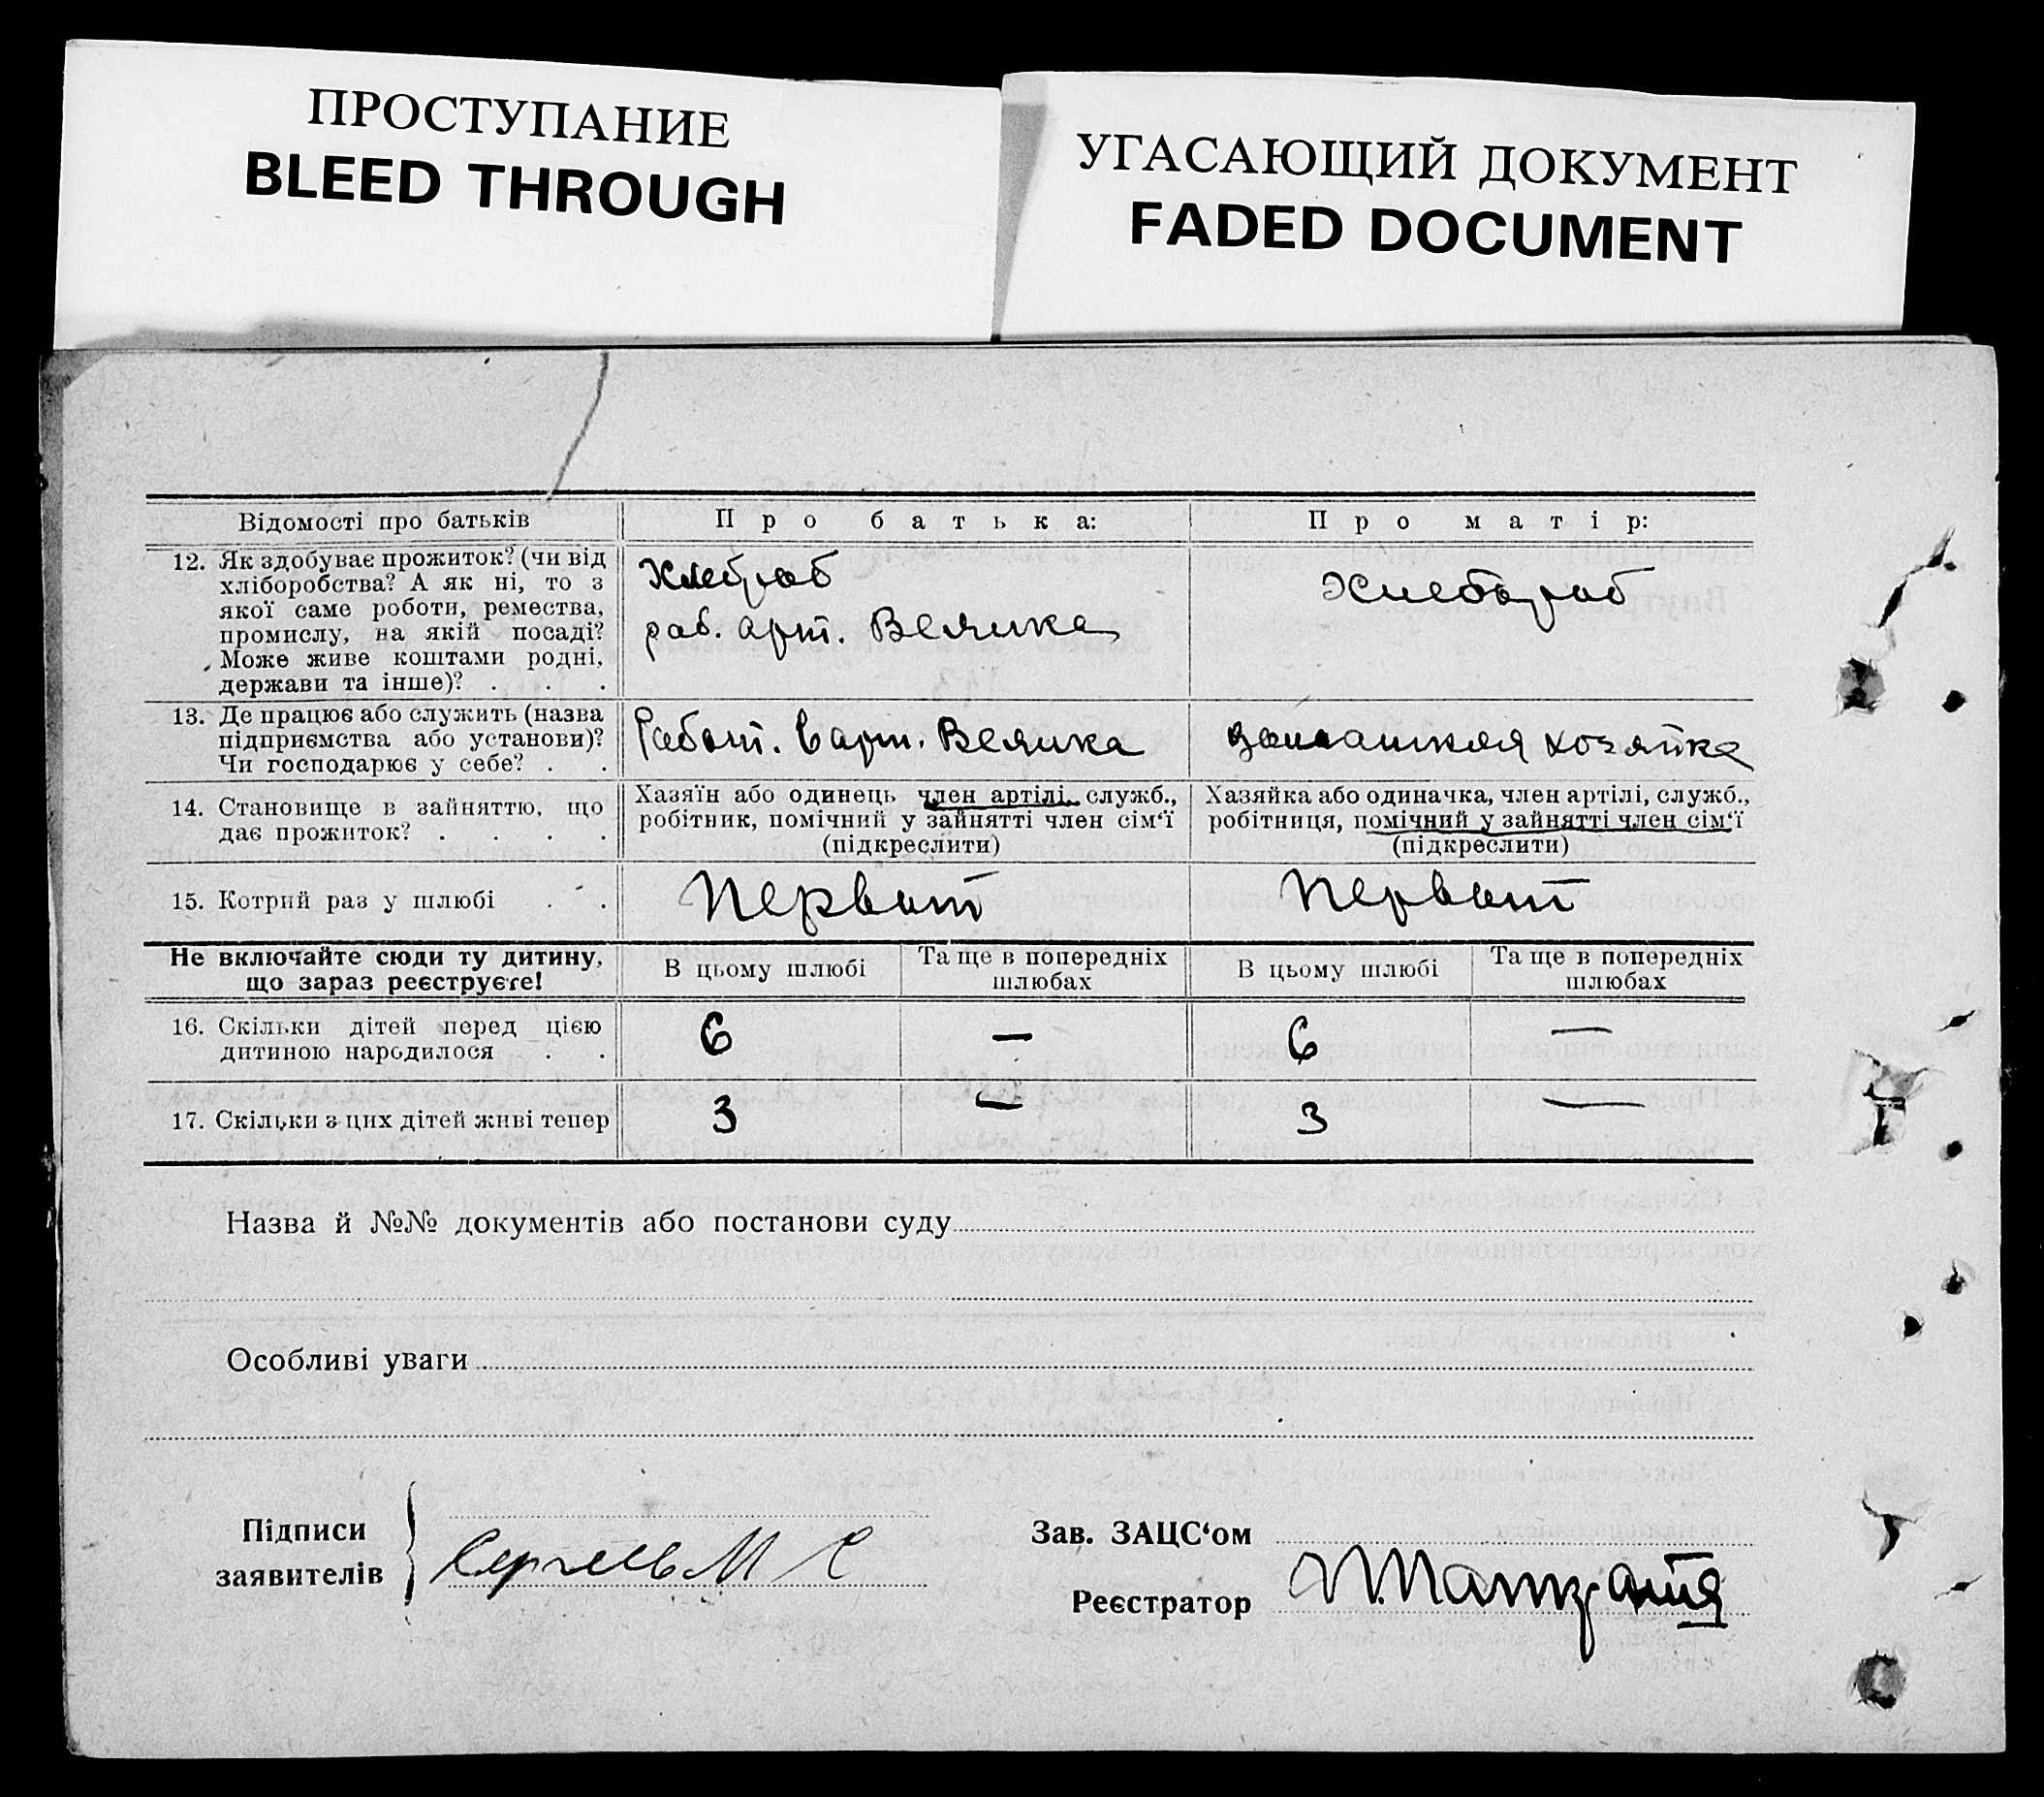 ПРОСТУПАНИЕ
BLEED THROUGH
УГАСАЮЩИЙ ДОКУМЕНТ
FADED DOCUMENT
Відомості про батьків
Про батька:
Про матір:
12. Як здобуває прожиток? (чи від
хліборобства? А як ні, то з
якої саме роботи, ремества,
промислу, на якій посаді?
Може живе коштами родні,
держави та інше)? . . .
Хлебраб
раб. арт. Велика
Хлебараб
13. Де працює або служить (назва
підприємства або установи)?
Чи господарює у себе? . .
Работ. в арт. Велика
домашняя хозяйка
14. Становище в зайняттю, що
дає прожиток? . . . .
Хазяїн або одинець член артілі, служб.,
робітник, помічний у зайнятті член сім‘ї
(підкреслити)
Хазяйка або одиначка, член артілі, служб.,
робітниця, помічний у зайнятті член сім‘ї
(підкреслити)
15. Котрий раз у шлюбі . .
Первой
Первой
Не включайте сюди ту дитину,
що зараз реєструєте!
В цьому шлюбі
Та ще в попередніх
шлюбах
В цьому шлюбі
Та ще в попередніх
шлюбах
16. Скільки дітей перед цією
дитиною народилося . .
6
—
6
—
17. Скільки з цих дітей живі тепер
3
—
3
—
Назва й №№ документів або постанови суду
Особливі уваги
Підписи
заявителів
М С
Зав. ЗАЦС‘ом
Реєстратор